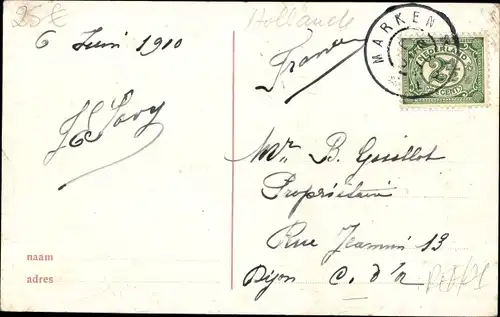 25€
Hollande
6 Juin 1910
France
MARKEN
NEDERLAND
2½
CENT
Mr B. Guillot
Propriétaire
Rue Jeannin 13
Dijon C. d'or
naam
adres